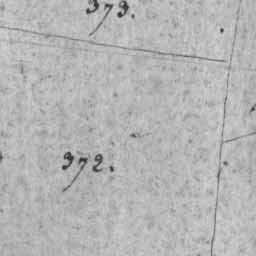 373.
372.